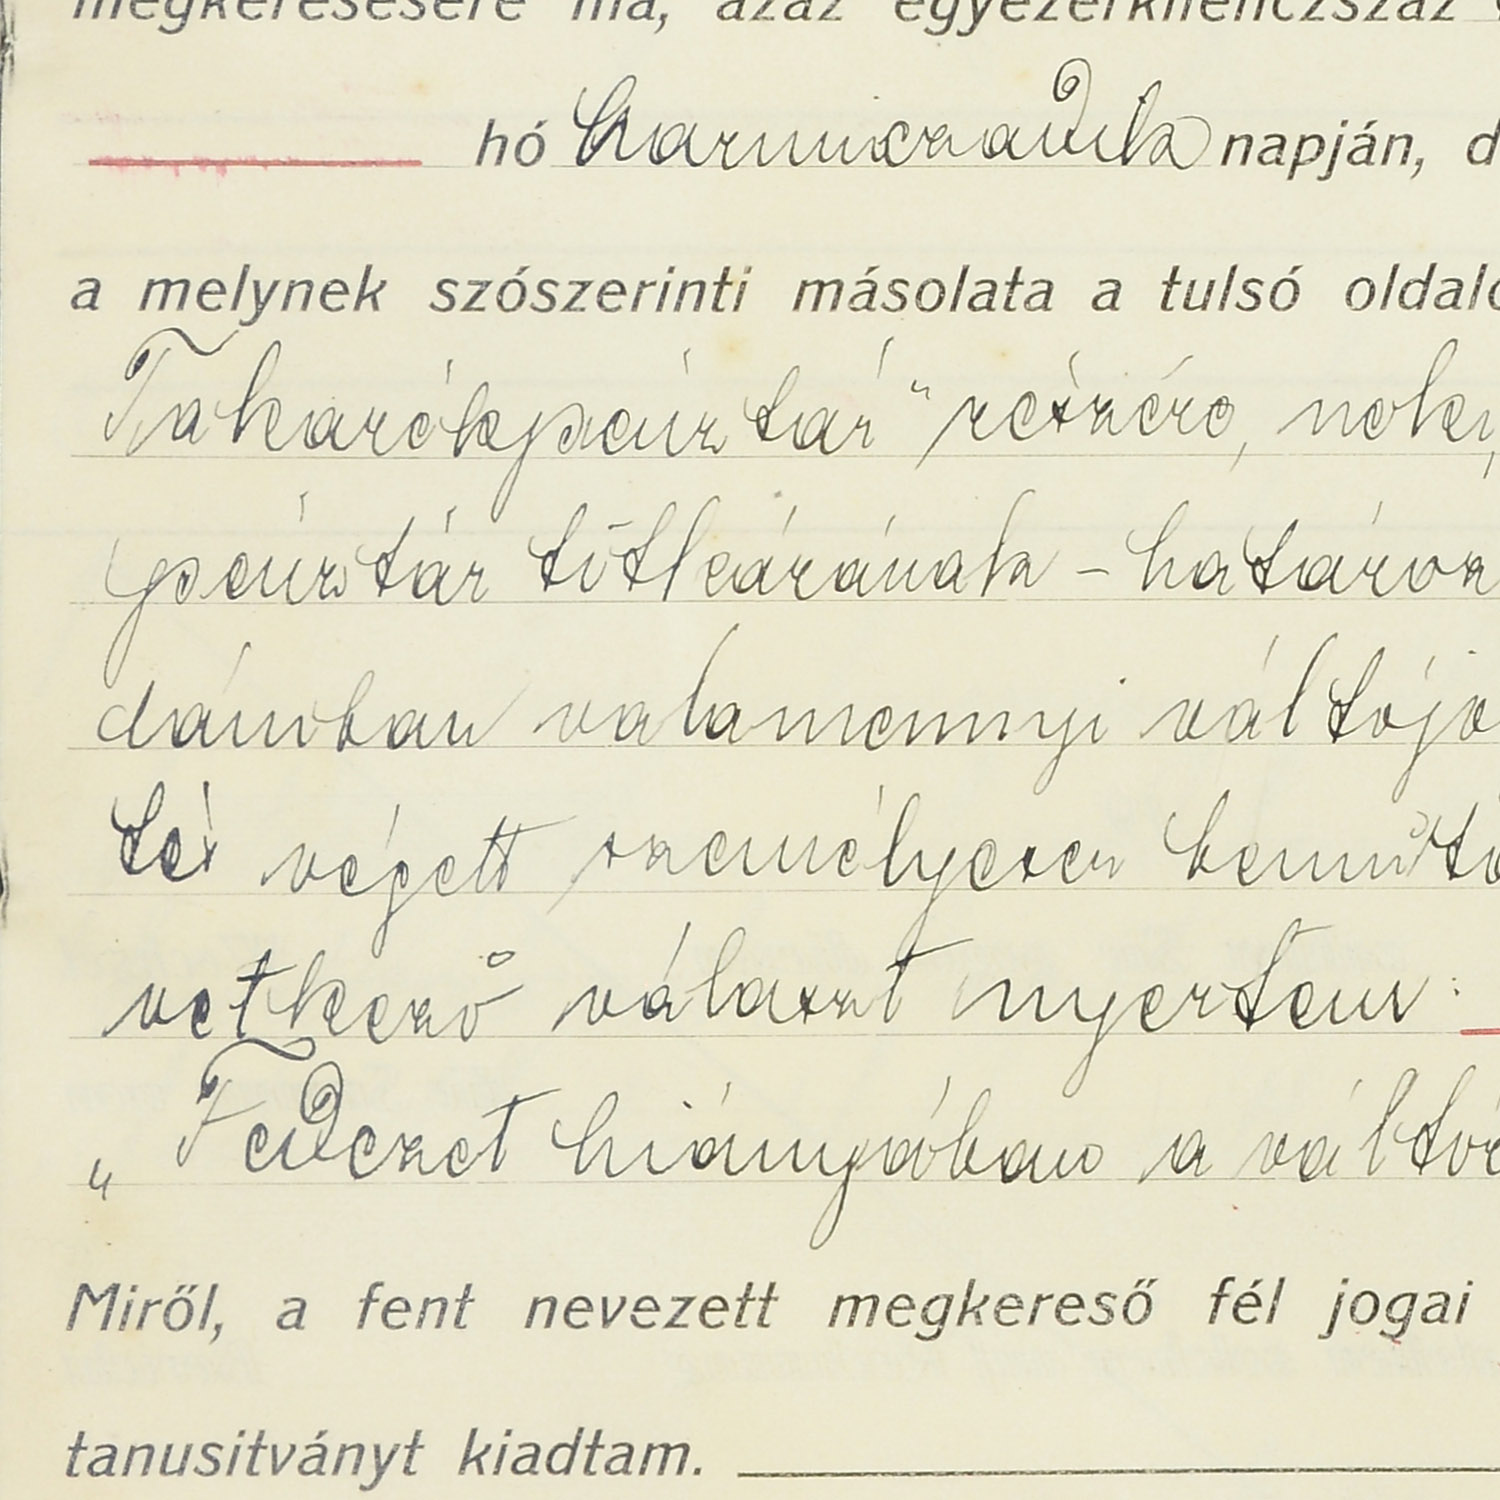 megkeresésére ma, azaz egyezerkilenczszáz
hó harminczadik napján, d
a melynek szószerinti másolata a tulsó oldalo
Takarékpénztár" részére, nek,
pénztár titkárának - határoz
dámban valamennyi váltójo
tés végett személyesen bemuta
vetkező választ nyertem:
„Fedezet hiányában a váltó
Miről, a fent nevezett megkereső fél jogai
tanusitványt kiadtam.